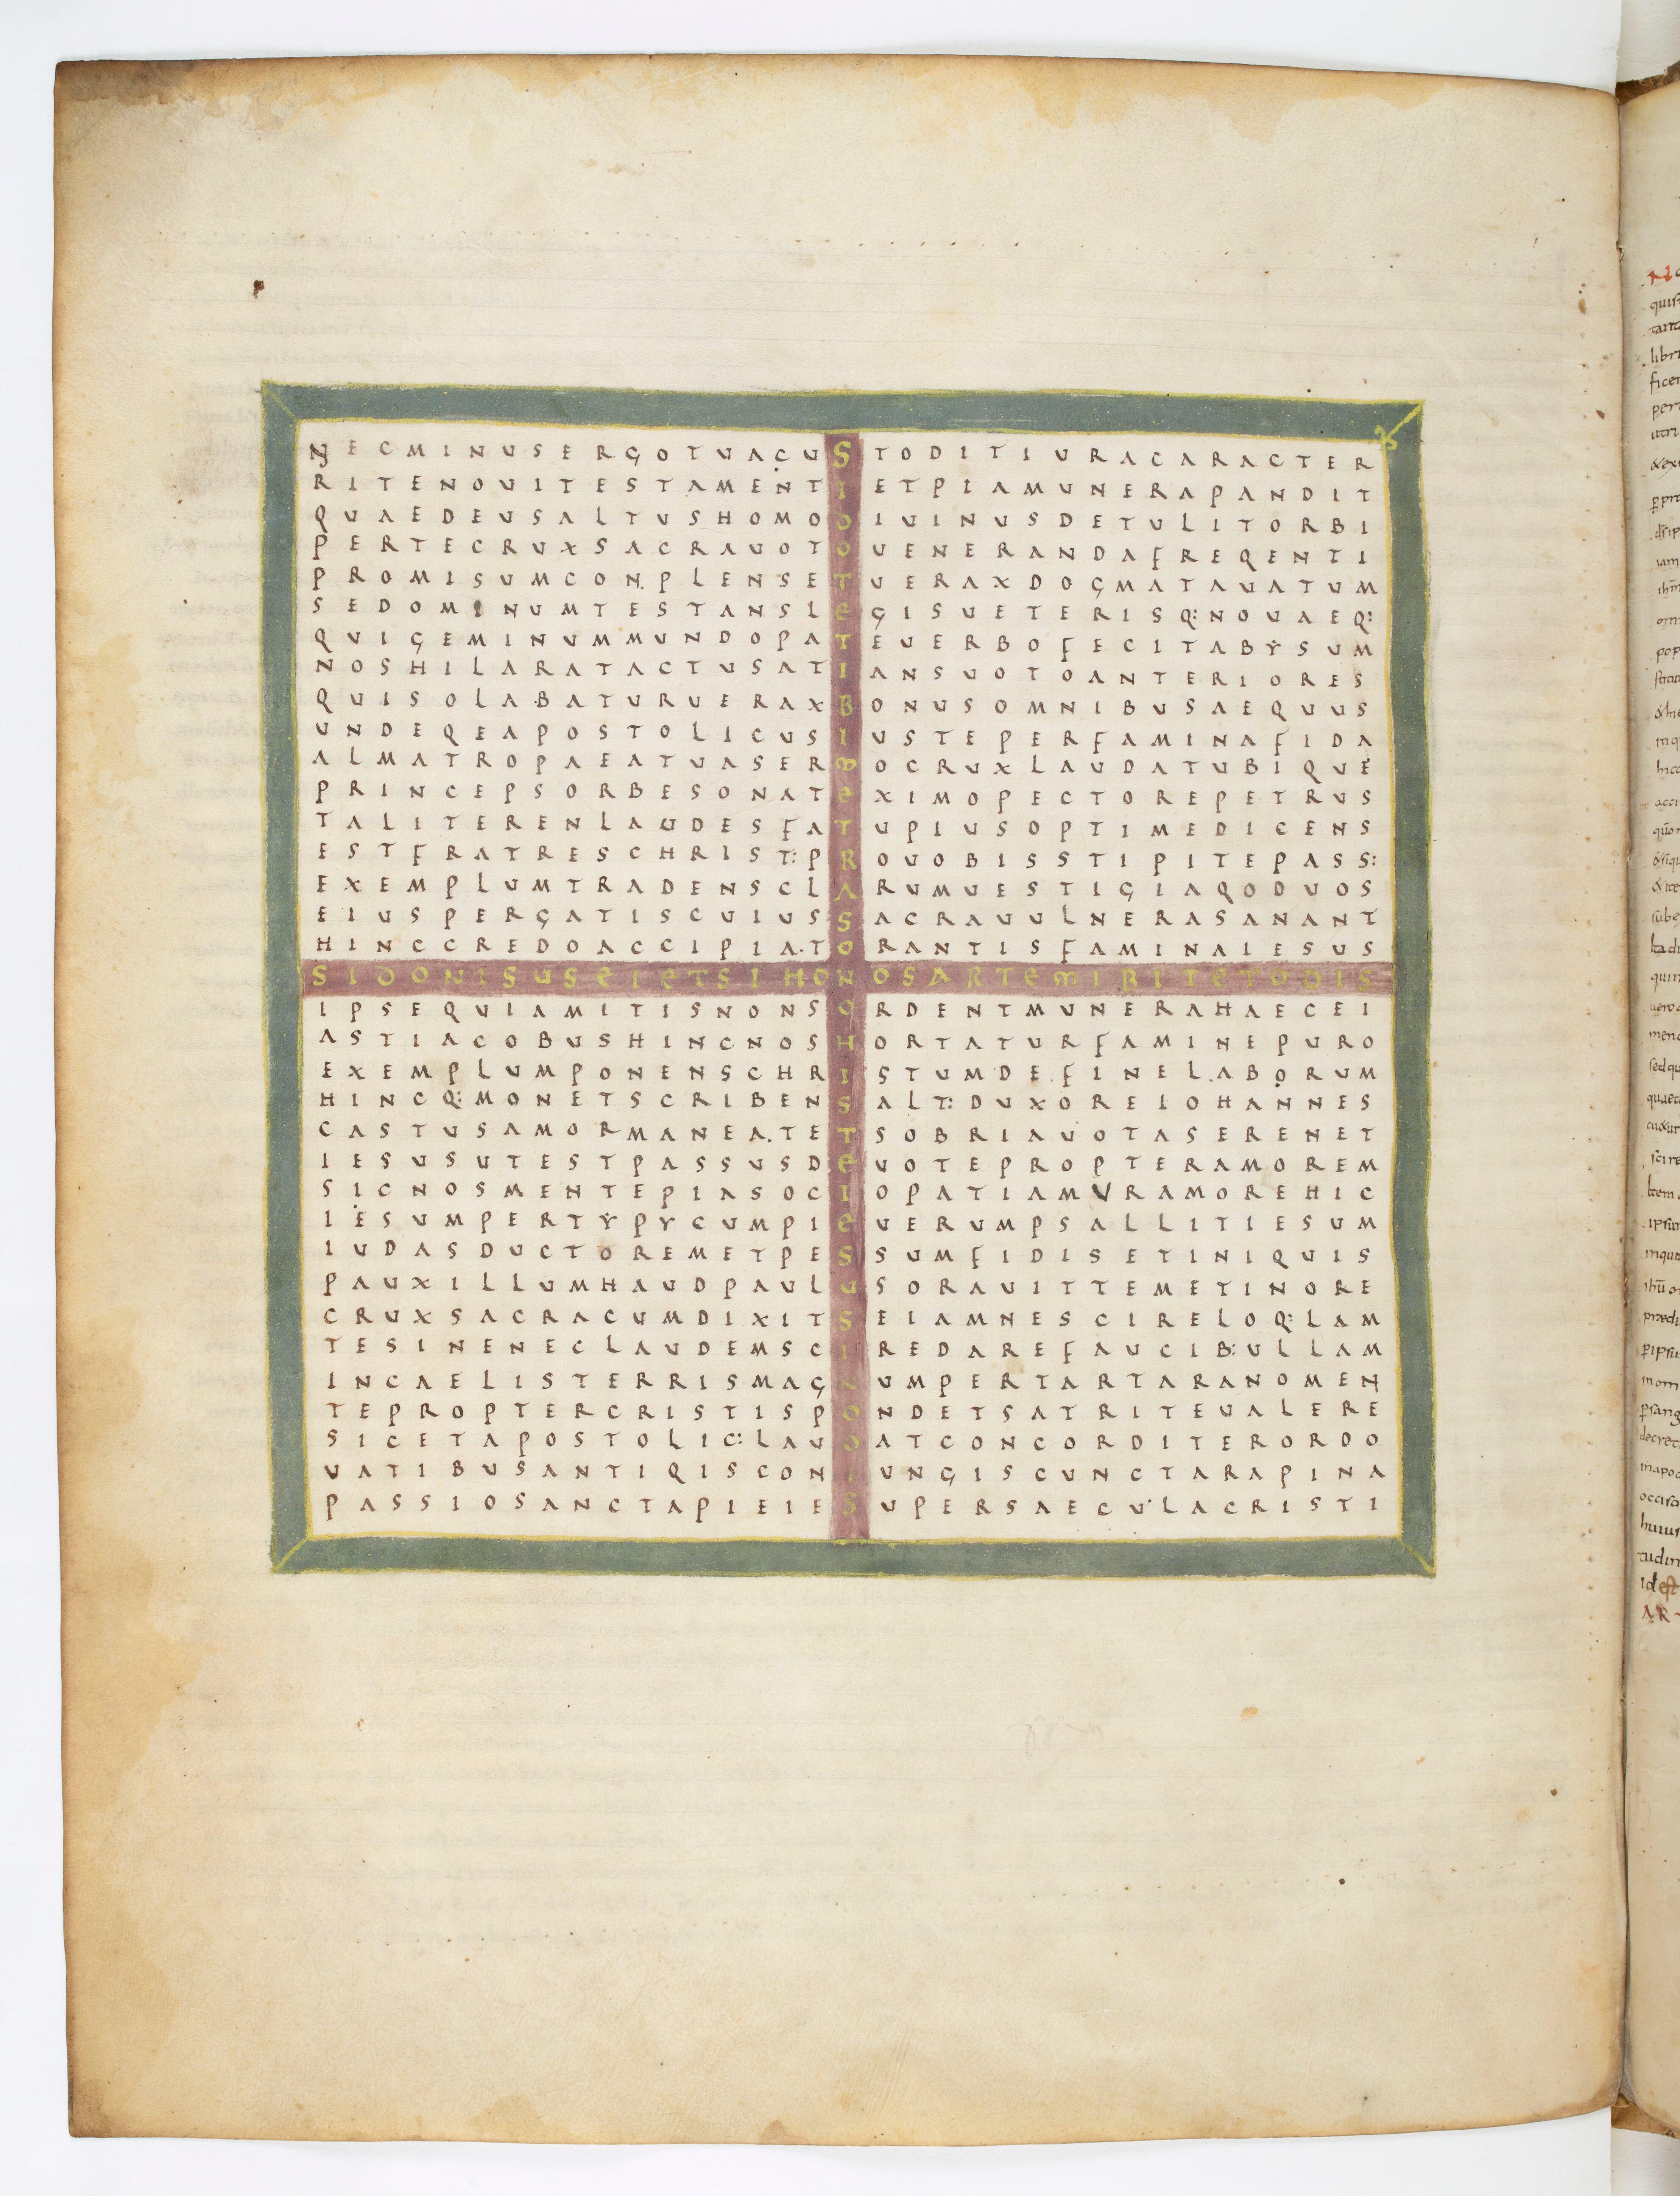 NECMINUSERGOTUACUSTODITIURACARACTER
RITENOVITESTAMENTIETPIAMUNERAPANDIT
QUAEDEUSALTUSHOMODIUINUSDETULITORBI
PERTECRUXSACRAUOTOUENERANDAFREQENTI
PROMISUMCONPLENSETUERAXDOGMATAUATUM
SEDOMINUMTESTANSLEGISUETERISQ:NOUAEQ:
QUIGEMINUMMUNDOPATEUERBOFECITABYSUM
NOSHILARATACTUSATIANSUOTOANTERIORES
QUISOLABATURUERAXBONUSOMNIBUSAEQUUS
UNDEQEAPOSTOLICUSIUSTEPERFAMINAFIDA
ALMATROPAEATUASERMOCRUXLAUDATUBIQUE
PRINCEPSORBESONATEXIMOPECTOREPETRUS
TALITERENLAUDESFATUPIUSOPTIMEDICENS
ESTFRATRESCHRIST:PROUOBISSTIPITEPASS:
EXEMPLUMTRADENSCLARUMUESTIGIAQODUOS
EIUSPERGATISCUIUSSACRAUULNERASANANT
HINCCREDOACCIPIATORANTISFAMINAIESUS
SIDONISUSEIETSIHONOSARTEMIBITETODIS
IPSEQUIAMITISNONSORDENTMUNERAHAECEI
ASTIACOBUSHINCNOSHORTATURFAMINEPURO
EXEMPLUMPONENSCHRISTUMDEFINELABORUM
HINCQ:MONETSCRIBENSALT:DUXOREIOHANNES
CASTUSAMORMANEATETSOBRIAUOTASERENET
IESUSUTESTPASSUSDEUOTEPROPTERAMOREM
SICNOSMENTEPIASOCIOPATIAMURAMOREHIC
IESUMPERTYPYCUMPIEUERUMPSALLITIESUM
IUDASDUCTOREMETPESSUMFIDISETINIQUIS
PAUXILLUMHAUDPAULUSORAUITTEMETINORE
CRUXSACRACUMDIXITSEIAMNESCIRELOQ:LAM
TESINENECLAUDEMSCIREDAREFAUCIB:ULLAM
INCAELISTERRISMAGNUMPERTARTARANOMEN
TEPROPTERCRISTISPONDETSATRITEUALERE
SICETAPOSTOLIC:LAUDATCONCORDITERORDO
UATIBUSANTIQISCONIUNGISCUNCTARAPINA
PASSIOSANCTAPIEIESUPERSAECULACRISTI